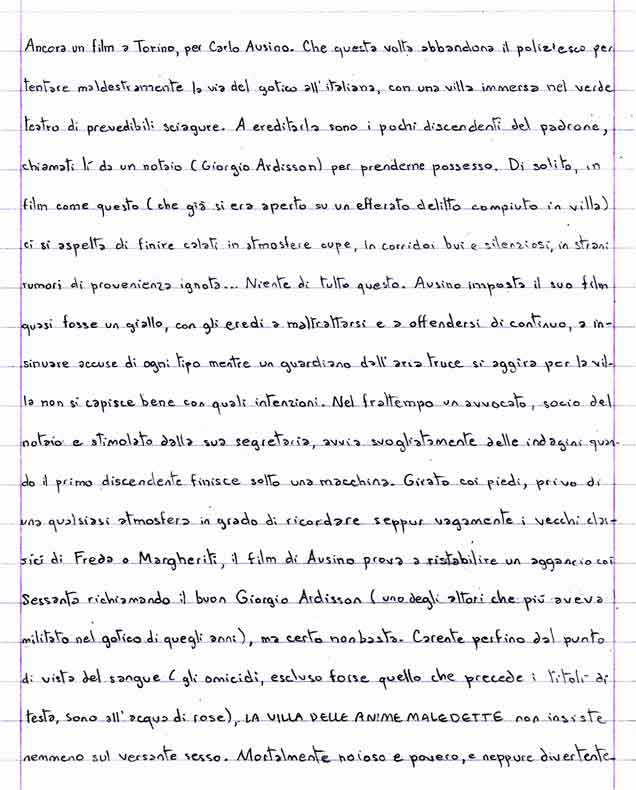 Ancora un film a Torino, per Carlo Ausino. Che questa volta abbandona il poliziesco per
tentare maldestramente la via del gotico all'italiana, con una villa immersa nel verde
teatro di prevedibili sciagure. A ereditarla sono i pochi discendenti del padrone,
chiamati lì da un notaio (Giorgio Ardisson) per prenderne possesso. Di solito, in
film come questo (che già si era aperto su un efferato delitto compiuto in villa)
ci si aspetta di finire calati in atmosfere cupe, in corridoi bui e silenziosi, in strani
rumori di provenienza ignota... Niente di tutto questo. Ausino imposta il suo film
quasi fosse un giallo, con gli eredi a maltrattarsi e a offendersi di continuo, a in-
sinuare accuse di ogni tipo mentre un guardiano dall'aria truce si aggira per la vil-
la non si capisce bene con quali intenzioni. Nel frattempo un avvocato, socio del
notaio e stimolato dalla sua segretaria, avvia svogliatamente delle indagini quan-
do il primo discendente finisce sotto una macchina. Girato coi piedi, privo di
una qualsiasi atmosfera in grado di ricordare seppur vagamente i vecchi clas-
sici di Freda o Margheriti, il film di Ausino prova a ristabilire un aggancio coi
Sessanta richiamando il buon Giorgio Ardisson (uno degli attori che più aveva
militato nel gotico di quegli anni), ma certo non basta. Carente perfino dal punto
di vista del sangue (gli omicidi, escluso forse quello che precede i titoli di
testa, sono all'acqua di rose), LA VILLA DELLE ANIME MALEDETTE non insiste
nemmeno sul versante sesso. Mortalmente noioso e povero, e neppure divertente.